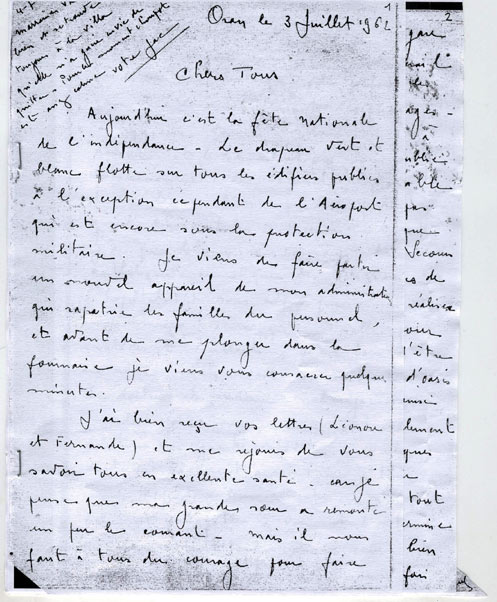 Oran le 3 Juillet 1962
1
2
Chers Tous
Aujourd'hui c'est la fête nationale
de l'indépendance - Le drapeau vert et
blanc flotte sur tous les édifices publics
à l'exception cependant de l'Aéroport
qui est encore sous la protection
militaire. Je viens de faire partir
un nouvel appareil de mon administration
qui rapatrie les familles du personnel,
et avant de me plonger dans la
fournaise je viens vous consacrer quelques
minutes.
J'ai bien reçu vos lettres (Léonore
et Fernande) et me réjouis de vous
savoir tous en excellente santé - car je
pense que ma grande sœur a remonté
un peu le courant - mais il nous
faut à tous du courage pour faire
toujours à la villa
qu'elle n'a jamais envie de
quitter -
votre Jac
gare
ublic
able
pas
que
Secours
es de
réaliser
l'être
d'oasis
lement
ques
tout
bien
fois